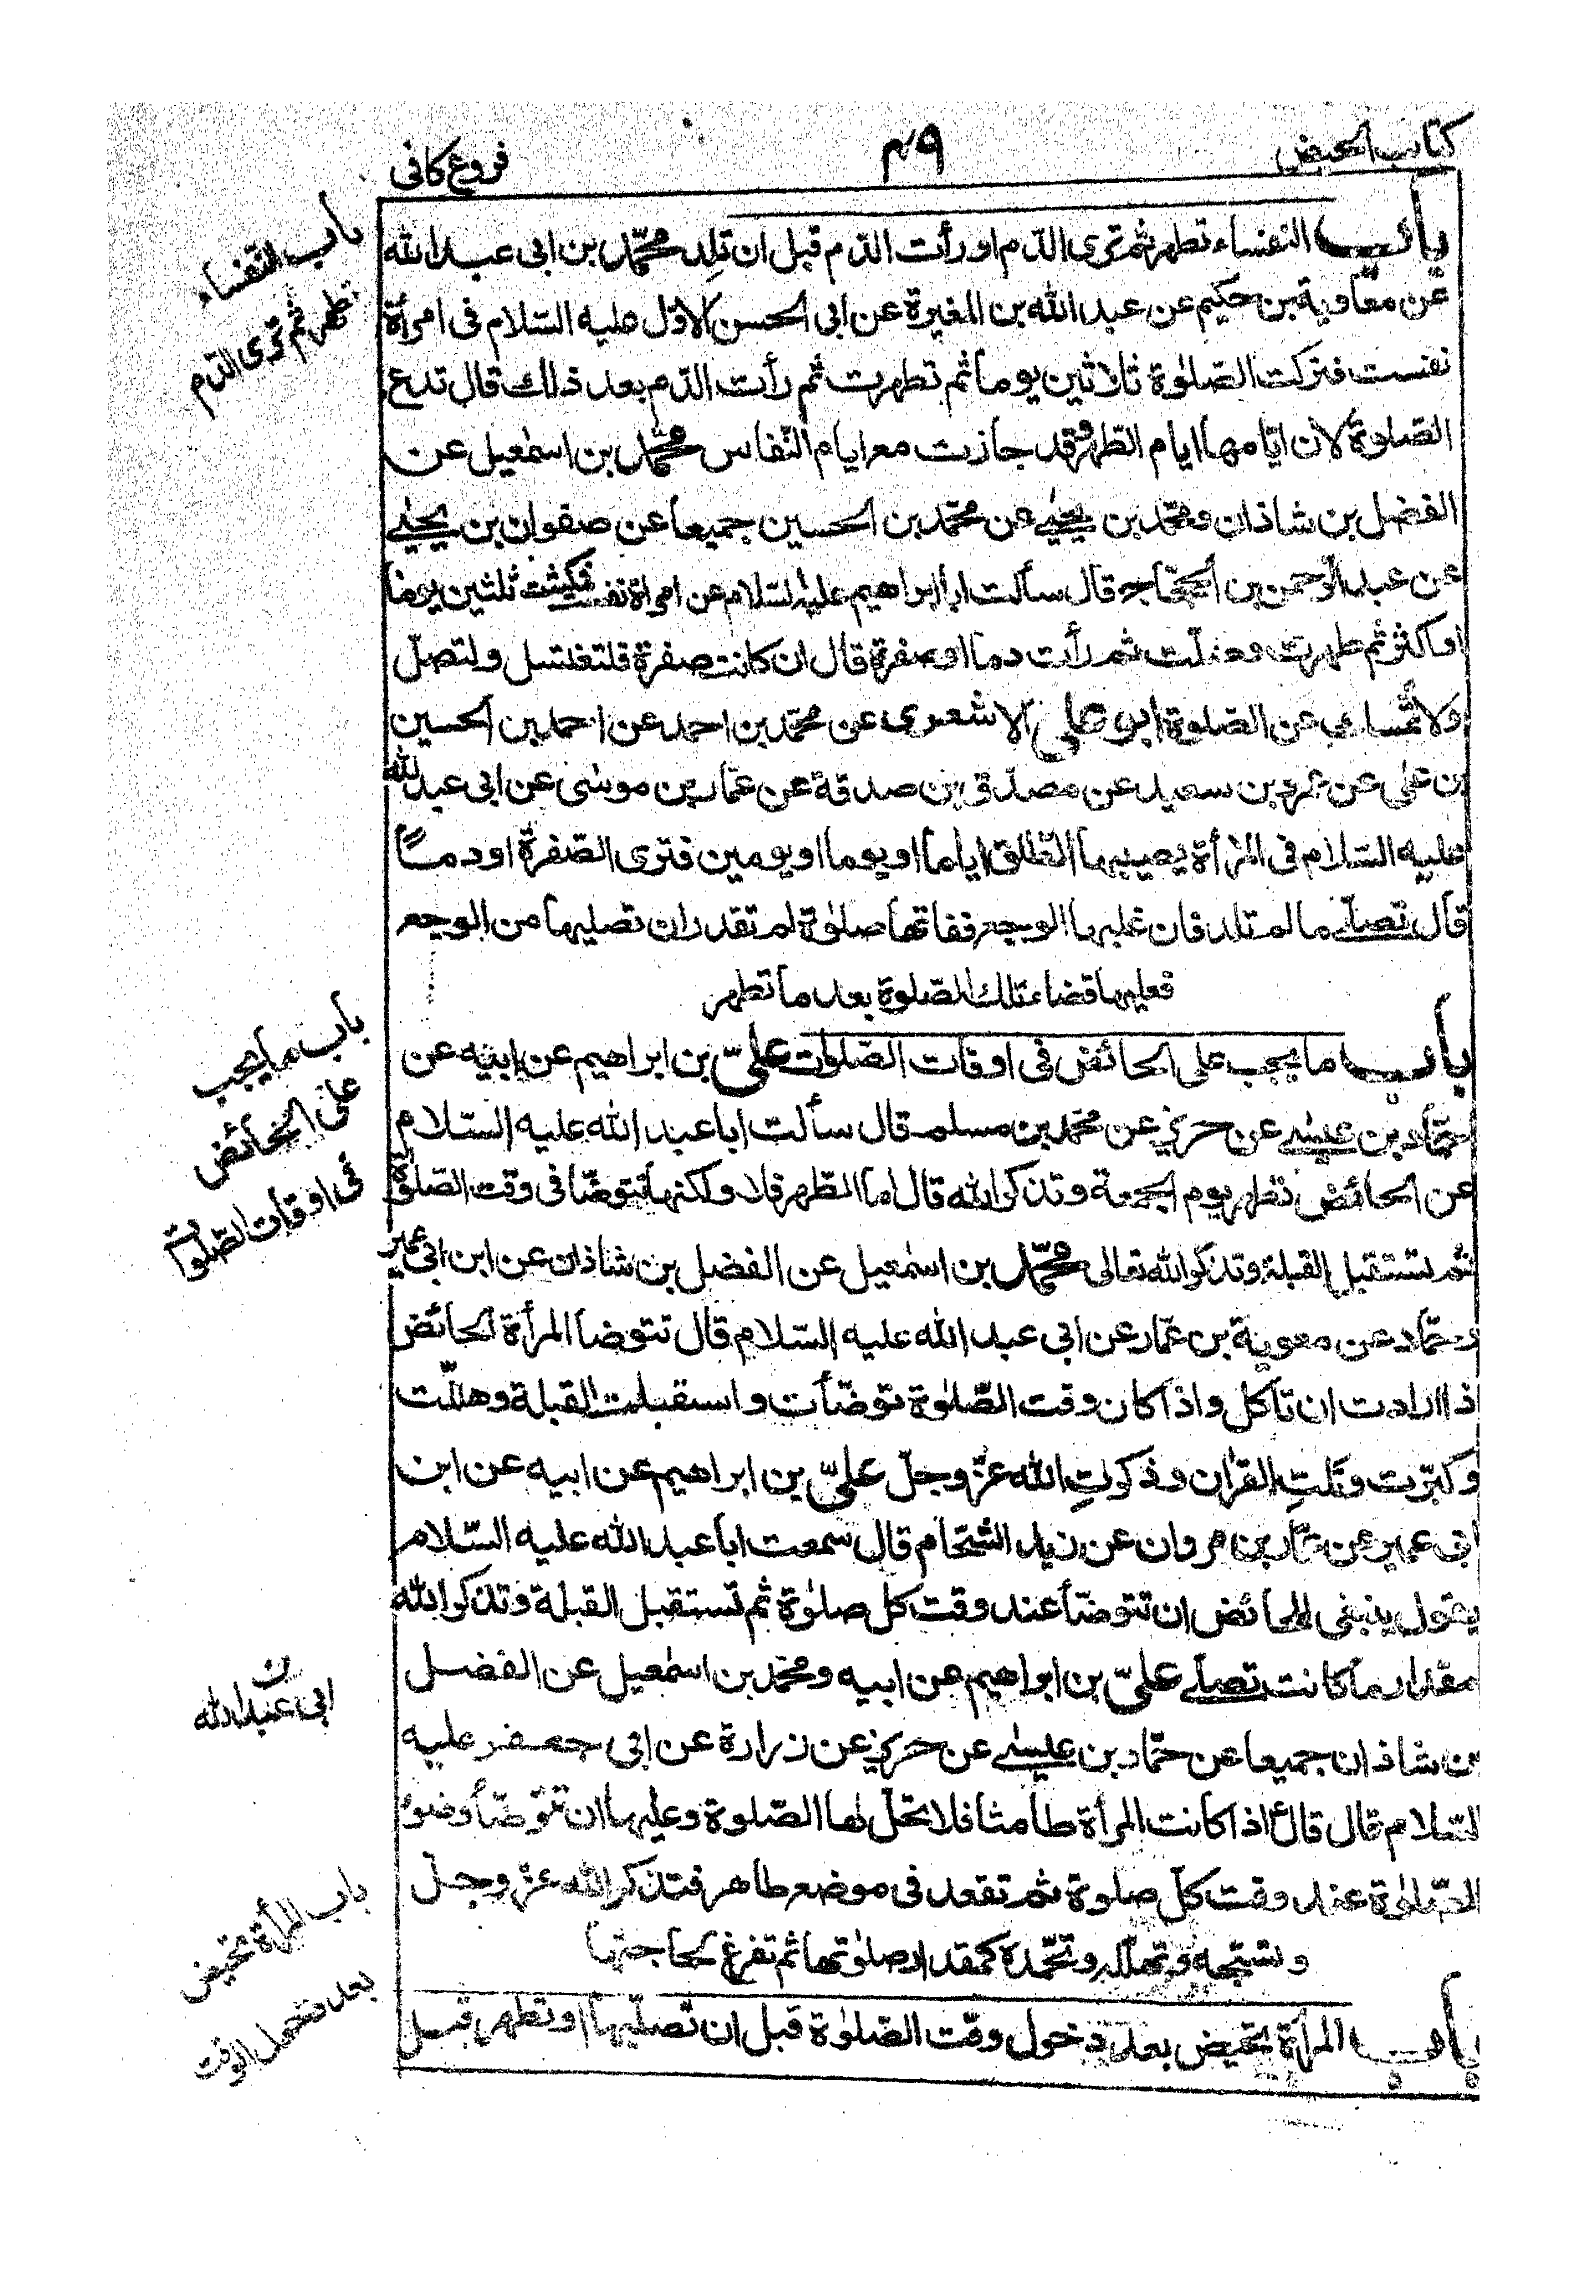 كتاب الحيض
٤٩
فروع كافى
باب النفساء تطهر ثم ترى الدّم او رأت الدّم قبل ان تلد محمّد بن ابى عبد الله
عن معاوية بن حكيم عن عبد الله بن المغيرة عن ابى الحسن الاوّل عليه السّلام فى امرأة
نفست فتركت الصّلوٰة ثلاثين يوما ثم تطهرت ثم رأت الدّم بعد ذلك قال تدع
الصّلوة لان ايّامها ايام الطّهر وقد جازت مع ايام النّفاس محمّد بن اسمٰعيل عن
الفضل بن شاذان ومحمّد بن يحيٰى عن محمّد بن الحسين جميعا عن صفوان بن يحيٰى
عن عبد الرّحمن بن الحجّاج قال سألت ابا ابراهيم عليه السّلام عن امرأة نفست فمكثت ثلثين يوما
او اكثر ثم طهرت وصلّت ثم رأت دما او صفرة قال ان كانت صفرة فلتغتسل ولتصلّ
ولا تمسك عن الصّلوة ابو على الاشعرى عن محمّد بن احمد عن احمد بن الحسين
بن على عن عمرو بن سعيد عن مصدّق بن صدقة عن عمّار بن موسٰى عن ابى عبد الله
عليه السّلام فى المرأة يصيبها الطّلق اياما او يوما او يومين فترى الصّفرة او دمًا
قال تصلّى ما لم تلد فان غلبها الوجع ففاتها صلوٰة لم تقدر ان تصليها من الوجع
فعليها قضاء تلك الصّلوة بعد ما تطهر
باب ما يجب على الحائض فى اوقات الصّلوات علىّ بن ابراهيم عن ابيه عن
حمّاد بن عيسٰى عن حريز عن محمّد بن مسلم قال سألت ابا عبد الله عليه السّلام
عن الحائض تطهر يوم الجمعة وتذكر الله قال اما الطّهر فلا ولكنها تتوضّأ فى وقت الصّلوة
ثم تستقبل القبلة وتذكر الله تعالى محمّد بن اسمٰعيل عن الفضل بن شاذان عن ابن ابى عمير
عن حمّاد عن معوية بن عمّار عن ابى عبد الله عليه السّلام قال تتوضا المرأة الحائض
اذا ارادت ان تأكل واذا كان وقت الصّلوٰة توضّأت واستقبلت القبلة وهلّلت
وكبّرت وتلتِ القرٰان وذكرتِ الله عزّ وجلّ علىّ بن ابراهيم عن ابيه عن ابن
ابى عمير عن عمّار بن مروان عن زيد الشّحّام قال سمعت ابا عبد الله عليه السّلام
يقول ينبغى للحائض ان تتوضّأ عند وقت كل صلوٰة ثم تستقبل القبلة وتذكر الله
مقدار ما كانت تصلّى علىّ بن ابراهيم عن ابيه ومحمّد بن اسمٰعيل عن الفضل
بن شاذان جميعا عن حمّاد بن عيسٰى عن حريز عن زرارة عن ابى جعفر عليه
السّلام قال قال اذا كانت المرأة طامثا فلا تحلّ لها الصّلوة وعليها ان تتوضّأ وضوء
الصّلوٰة عند وقت كلّ صلوة ثم تقعد فى موضع طاهر فتذكر الله عزّ وجلّ
وتسبّحه وتهلّله وتحمّده كمقدار صلوٰتها ثم تفرغ لحاجتها
باب المرأة تحيض بعد دخول وقت الصّلوٰة قبل ان تصلّيها او تطهر قبل
باب النّفساء
تطهر ثم ترى الدّم
باب ما يجب
على الحائض
فى اوقات الصّلوات
ن
ابى عبد الله
باب المرأة تحيض
بعد دخول الوقت